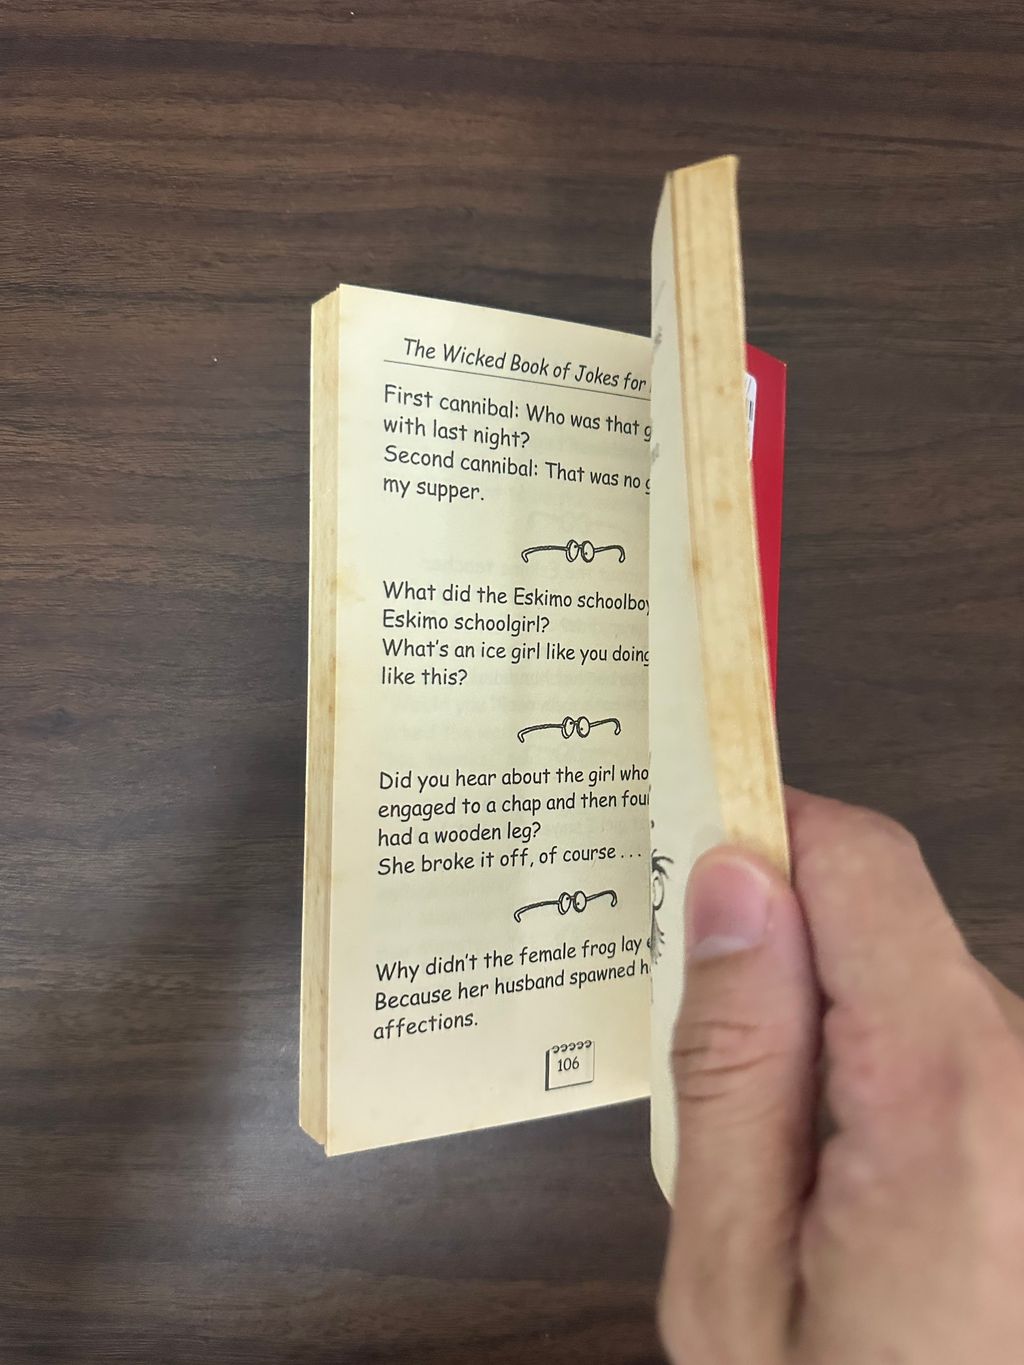 The Wicked Book of Jokes for
First cannibal: Who was that
with last night?
Second cannibal: That was no
my supper.
What did the Eskimo schoolboy
Eskimo schoolgirl?
What's an ice girl like you doing
like this?
Did you hear about the girl who
engaged to a chap and then
had a wooden leg?
She broke it off, of course . . .
Why didn't the female frog lay
Because her husband spawned
affections.
106